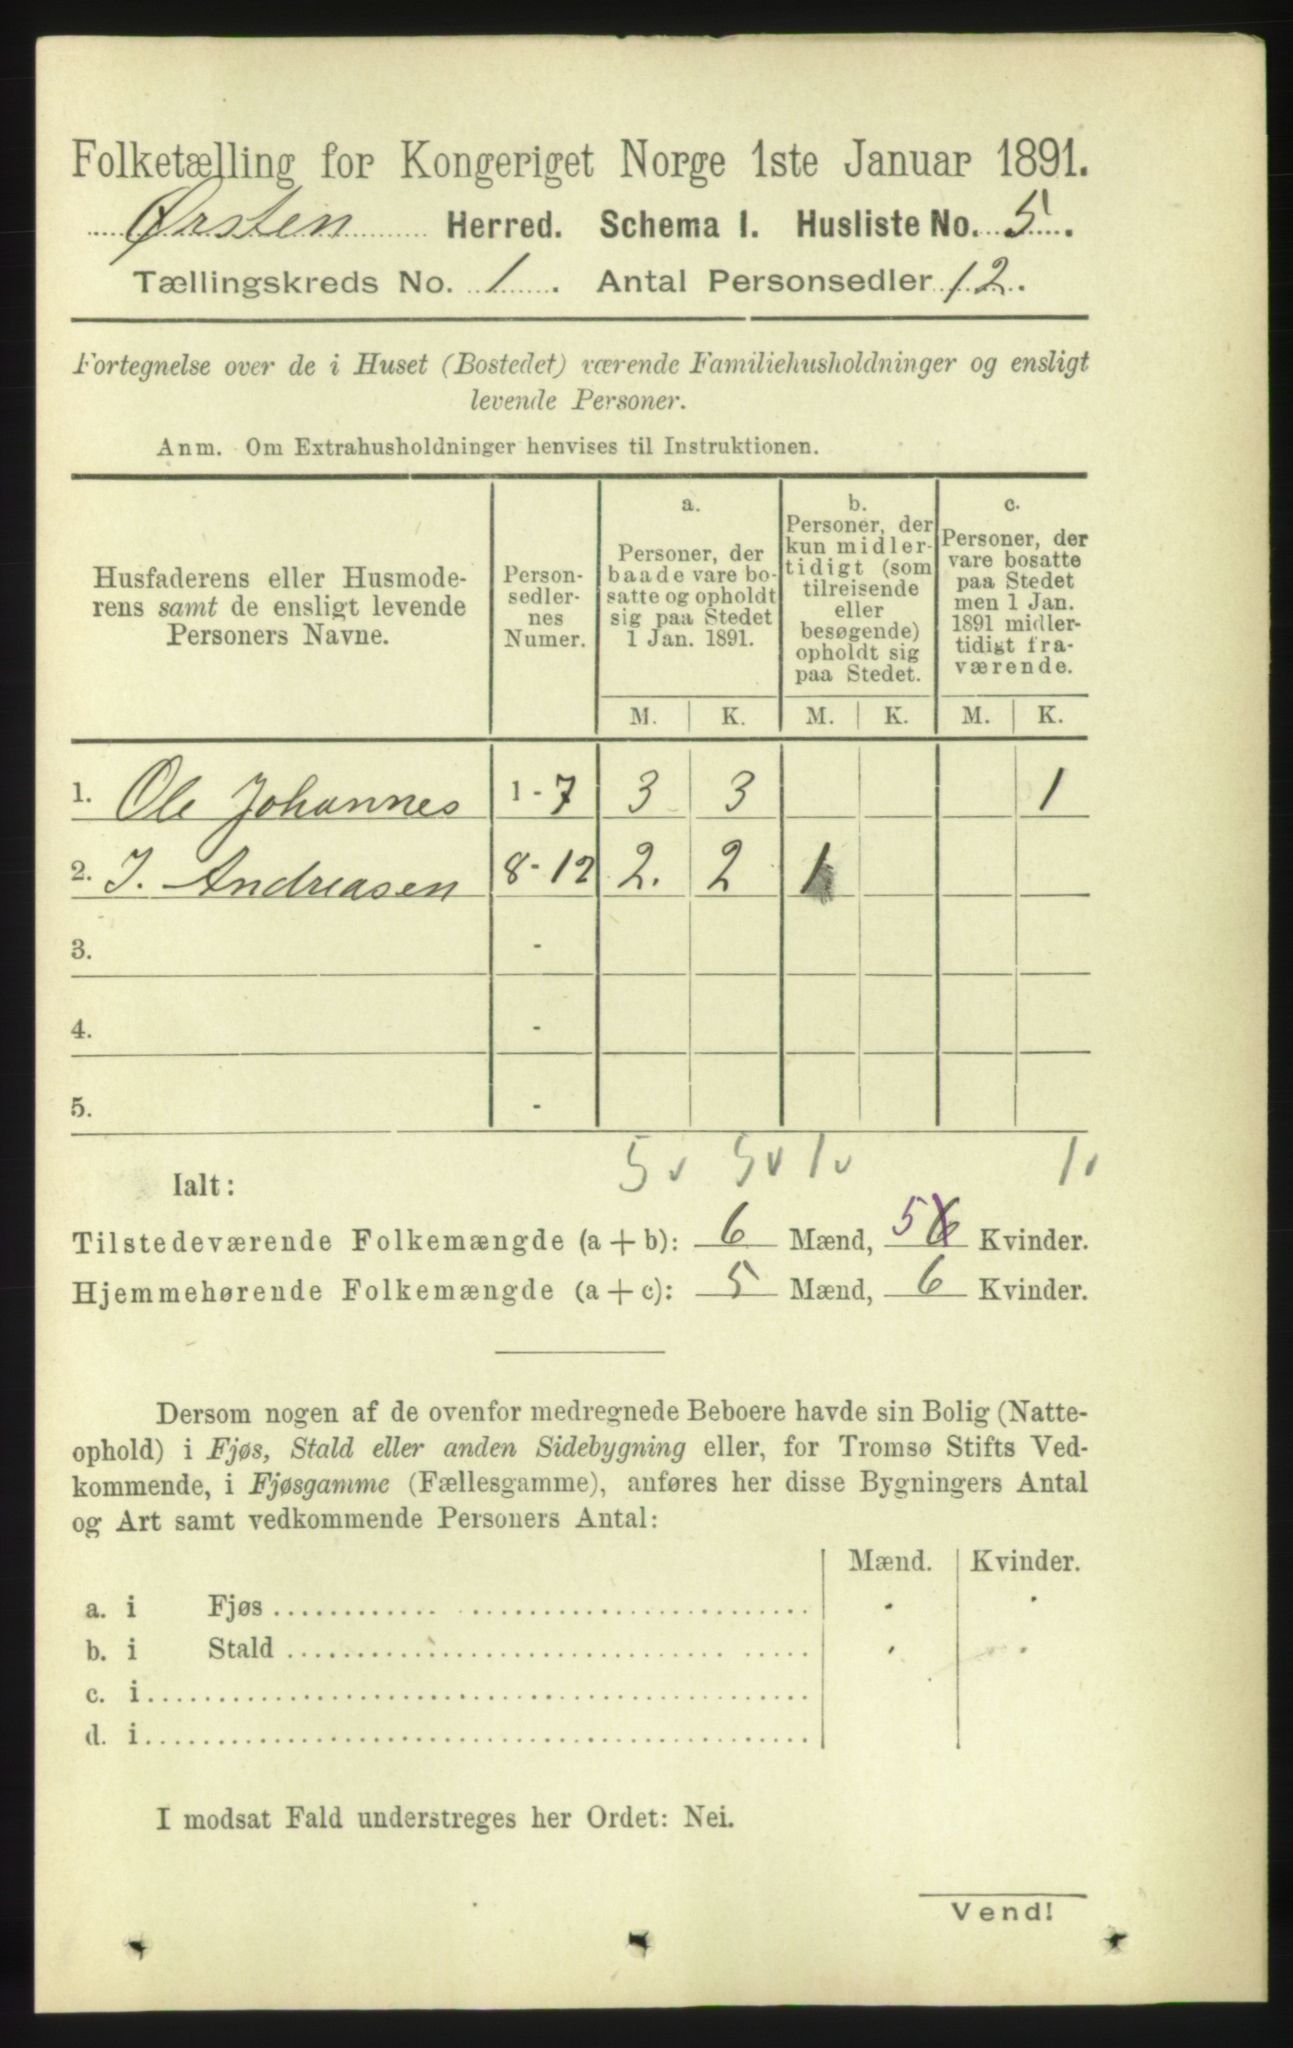 Folketælling for Kongeriget Norge 1ste Januar 1891.
Ørsten Herred. Schema I. Husliste No. 5.
Tællingskreds No. 1. Antal Personsedler 12.
Fortegnelse over de i Huset (Bostedet) værende Familiehusholdninger og ensligt
levende Personer.
Anm. Om Extrahusholdninger henvises til Instruktionen.
Husfaderens eller Husmode-
rens samt de ensligt levende
Personers Navne.
Person-
sedler-
nes
Numer.
a.
Personer, der
baade vare bo-
satte og opholdt
sig paa Stedet
1 Jan. 1891.
b.
Personer, der
kun midler-
tidigt (som
tilreisende
eller
besøgende)
opholdt sig
paa Stedet.
c.
Personer, der
vare bosatte
paa Stedet
men 1 Jan.
1891 midler-
tidigt fra-
værende.
M. K. M. K. M. K.
1. Ole Johannes 1-7 3 3 1
2. J. Andreasen 8-12 2. 2 1
3. -
4. -
5. -
5 v 5 v 1 v 1 v
Ialt:
Tilstedeværende Folkemængde (a + b): 6 Mænd, 5 6 Kvinder.
Hjemmehørende Folkemængde (a + c): 5 Mænd, 6 Kvinder.
Dersom nogen af de ovenfor medregnede Beboere havde sin Bolig (Natte-
ophold) i Fjøs, Stald eller anden Sidebygning eller, for Tromsø Stifts Ved-
kommende, i Fjøsgamme (Fællesgamme), anføres her disse Bygningers Antal
og Art samt vedkommende Personers Antal:
Mænd. Kvinder.
a. i Fjøs
b. i Stald
c. i
d. i
I modsat Fald understreges her Ordet: Nei.
Vend!